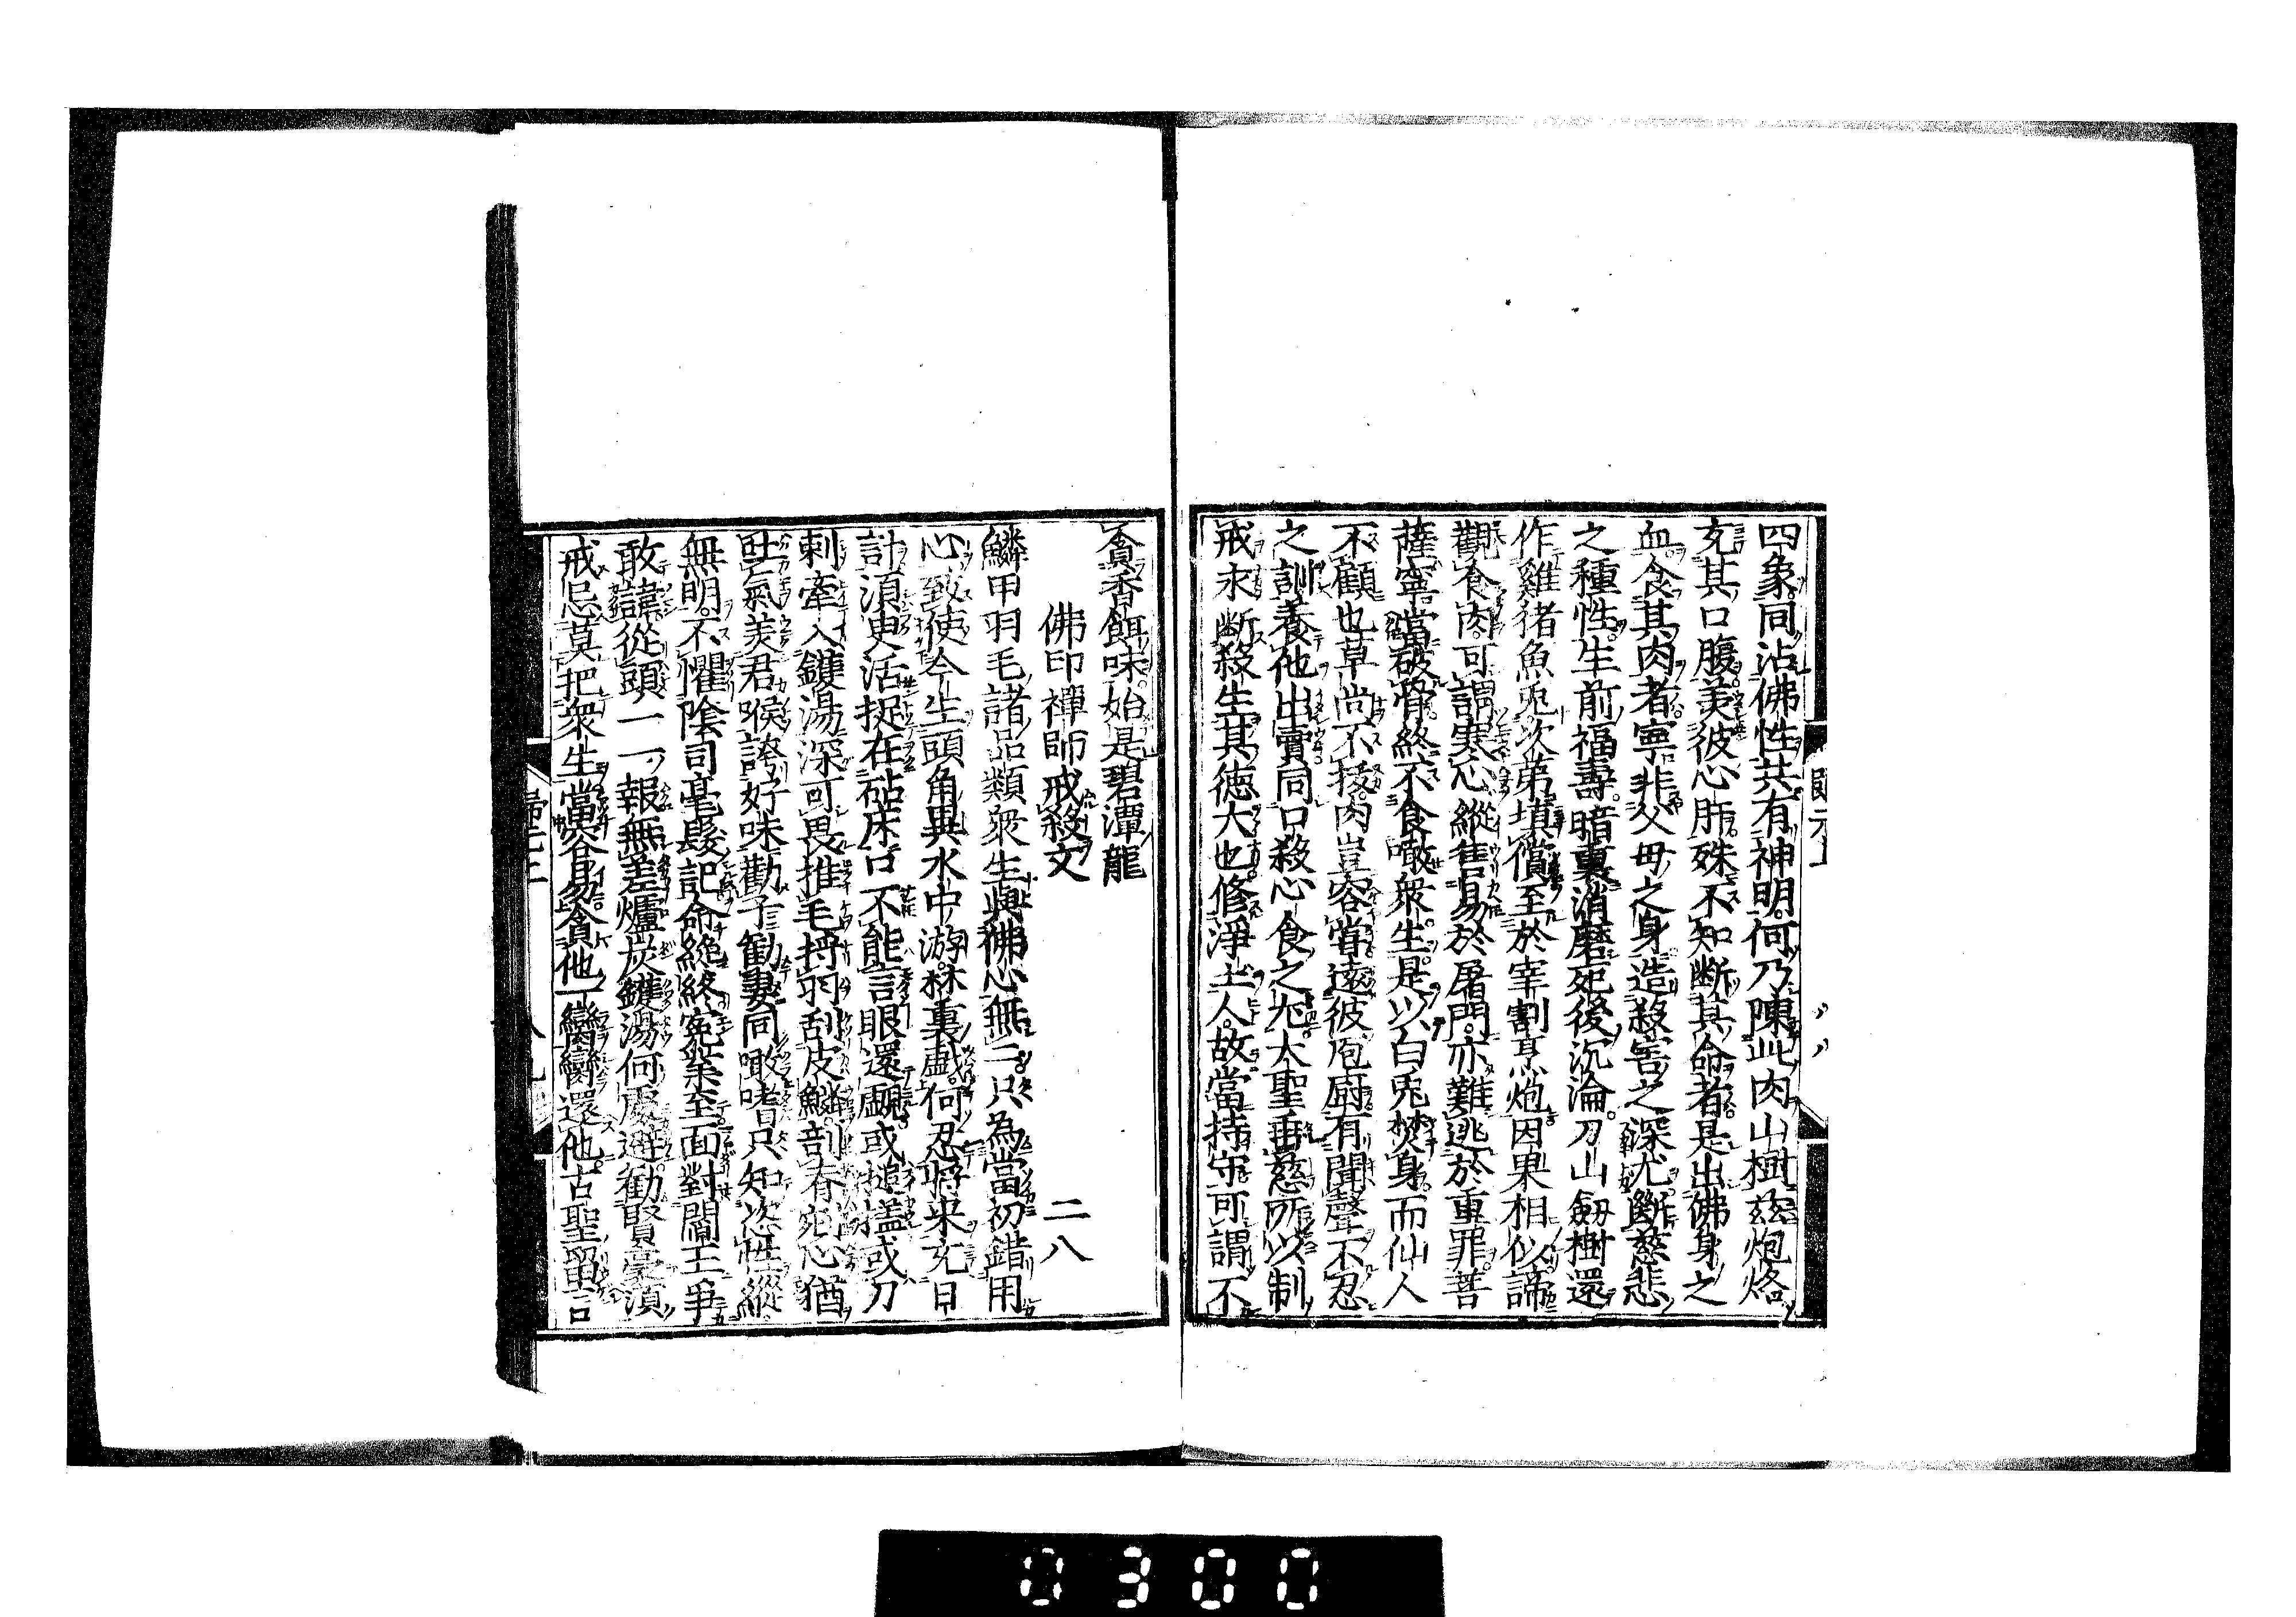 四象同沾佛性共有神明何乃陳此肉山樹茲炮烙
充其口腹美彼心肝殊不知断其命者是出佛身之
血食其肉者寧非父母之身造殺害之深尤斷慈悲
之種性生前福壽暗裏消磨死後沉淪刀山劒樹還
作雞猪魚兎次第填償至於宰割烹炮因果相似諦
觀食肉可謂寒心縱售易於屠門亦難逃於重罪菩
薩寧當破骨終不食噉衆生是以白兎焚身而仙人
不顧也草尚不揍肉豈容甞遠彼庖厨有聞聲不忍
之訓養他出賣同口殺心食之尤大聖垂慈所以制
戒永断殺生其德大也修淨土人故當持守可謂不
貪香餌味始是碧潭龍
佛印禪師戒殺文 二八
鱗甲羽毛諸品類衆生與佛心無二只為當初錯用
心致使今生頭角異水中游林裏戯何忍將来充日
計湏臾活捉在砧床口不能言眼還覷或搥搕或刀
刺牽入鑊湯深可畏推毛捋羽刮皮鱗剖脊剜心猶
吐氣美君喉誇好味勸子勸妻同噉嗜只知恣性縱
無明不懼陰司毫髮記命絶終寃業至面對閻王爭
敢諱從頭一一報無差爐炭鑊湯何處避勸賢豪湏
戒忌莫把衆生當容易貪他一臠臠還他古聖畱言
0300